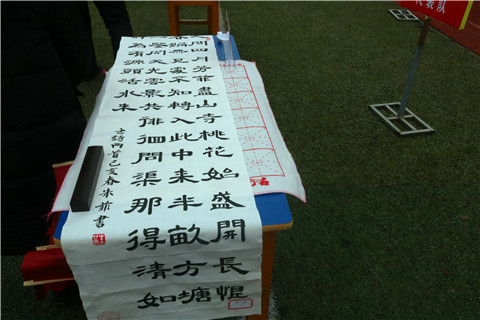 人間四月芳菲盡山寺桃花始盛開長恨
歸無覓處不知轉入此中來半畝方塘
鑒開天光雲影共徘徊問渠那得清如
為有源頭活水來
古詩兩首己亥春朱菲書
代表队